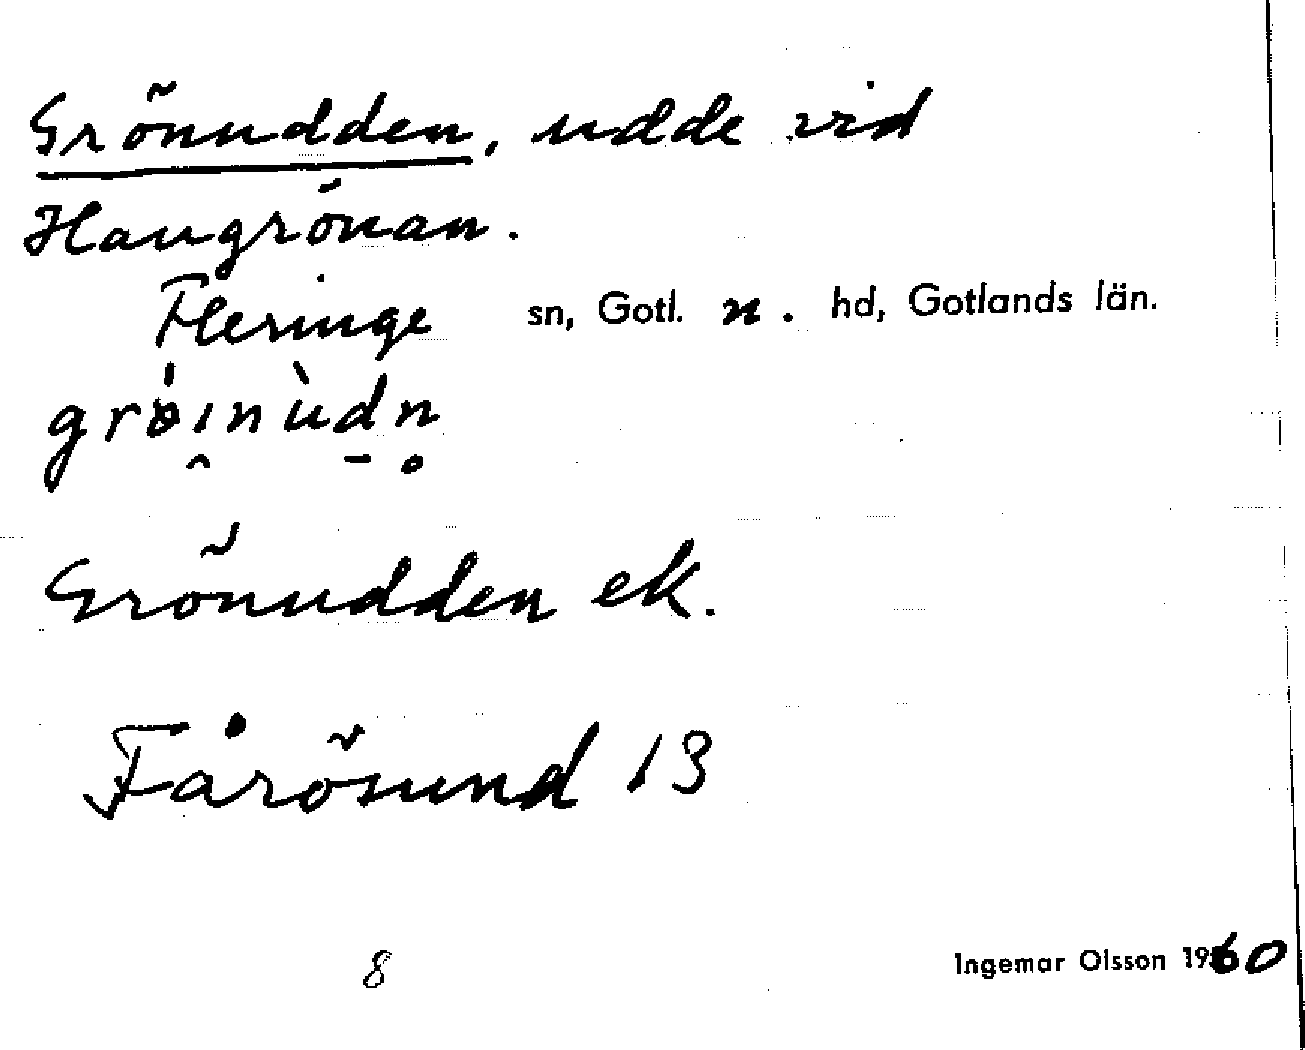 Grönudden, udde vid
Haugrönan.
Fleringe sn, Gotl. n. hd, Gotlands län.
Grönudden ek.
Fårösund 13
8
Ingemar Olsson 1960